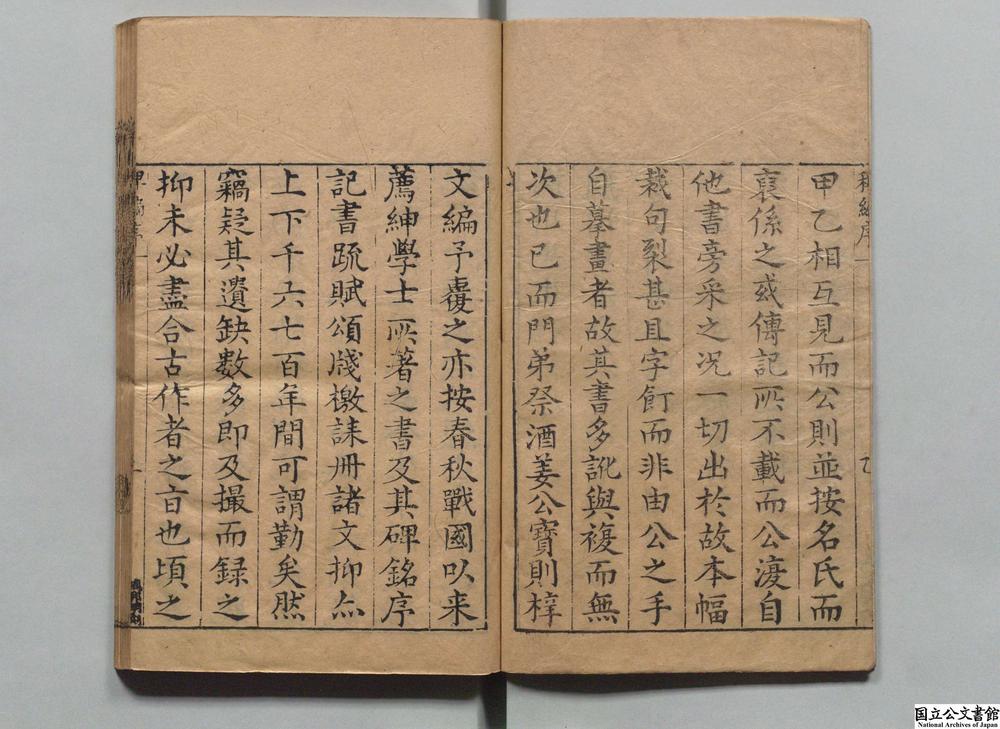 甲乙相互見而公則並按名氏而
裒係之或傳記所不載而公溲自
他書旁采之况一切出於故本幅
裁句裂甚且字飣而非由公之手
自摹畫者故其書多訛與複而無
次也已而門弟祭酒姜公寶則梓
文編予覆之亦按春秋戰國以来
薦紳學士所著之書及其碑銘序
記書疏賦頌牋檄誄冊諸文抑亦
上下千六七百年間可謂勤矣然
竊疑其遺缺數多即及撮而録之
抑未必盡合古作者之旨也頃之
国立公文書館
National Archives of Japan